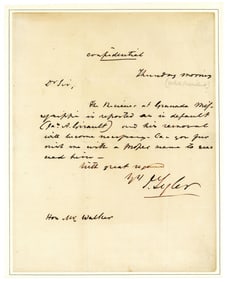 confidential
Thursday morning
Dr Sir,
The Receiver at Granada Mis-
sissippi is reported as in default
(Jas A. Girault) and his removal
will become necessary. Can you fur
nish me with a proper name to suc
ceed him —
with great regard
Yrs J. Tyler
Hon Mr Walker